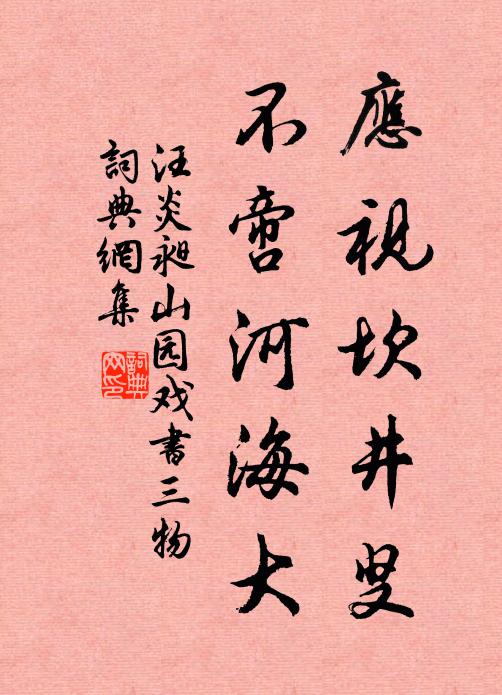 應視坎井叟
不啻河海大
汪炎昶山园戏書三物
詞典網集
詞典
网印